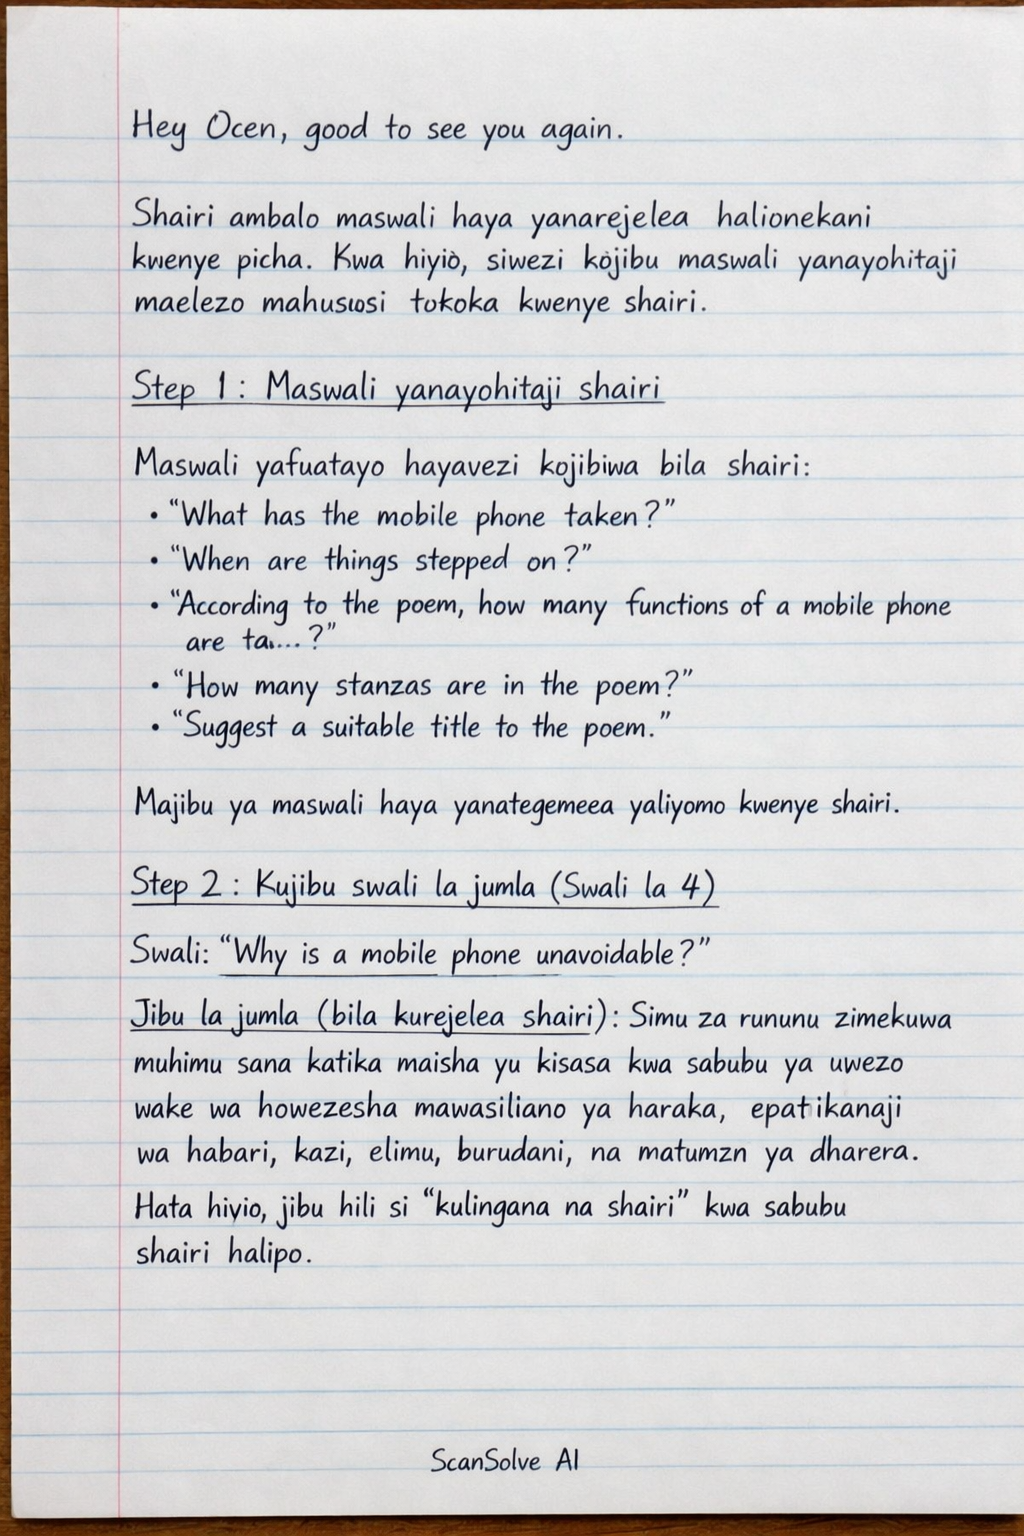 Hey Ocen, good to see you again.
Shairi ambalo maswali haya yanarejelea halionekani
kwenye picha. Kwa hiyiò, siwezi kòjibu maswali yanayohitaji
maelezo mahususi tokoka kwenye shairi.
Step 1: Maswali yanayohitaji shairi
Maswali yafuatayo hayavezi kojibiwa bila shairi:
• "What has the mobile phone taken?"
• "When are things stepped on?"
• "According to the poem, how many functions of a mobile phone
are ta...?"
• "How many stanzas are in the poem?"
• "Suggest a suitable title to the poem."
Majibu ya maswali haya yanategemeea yaliyomo kwenye shairi.
Step 2: Kujibu swali la jumla (Swali la 4)
Swali: "Why is a mobile phone unavoidable?"
Jibu la jumla (bila kurejelea shairi): Simu za rununu zimekuwa
muhimu sana katika maisha yu kisasa kwa sabubu ya uwezo
wake wa howezesha mawasiliano ya haraka, epatikanaji
wa habari, kazi, elimu, burudani, na matumzn ya dharera.
Hata hiyio, jibu hili si "kulingana na shairi" kwa sabubu
shairi halipo.
ScanSolve AI